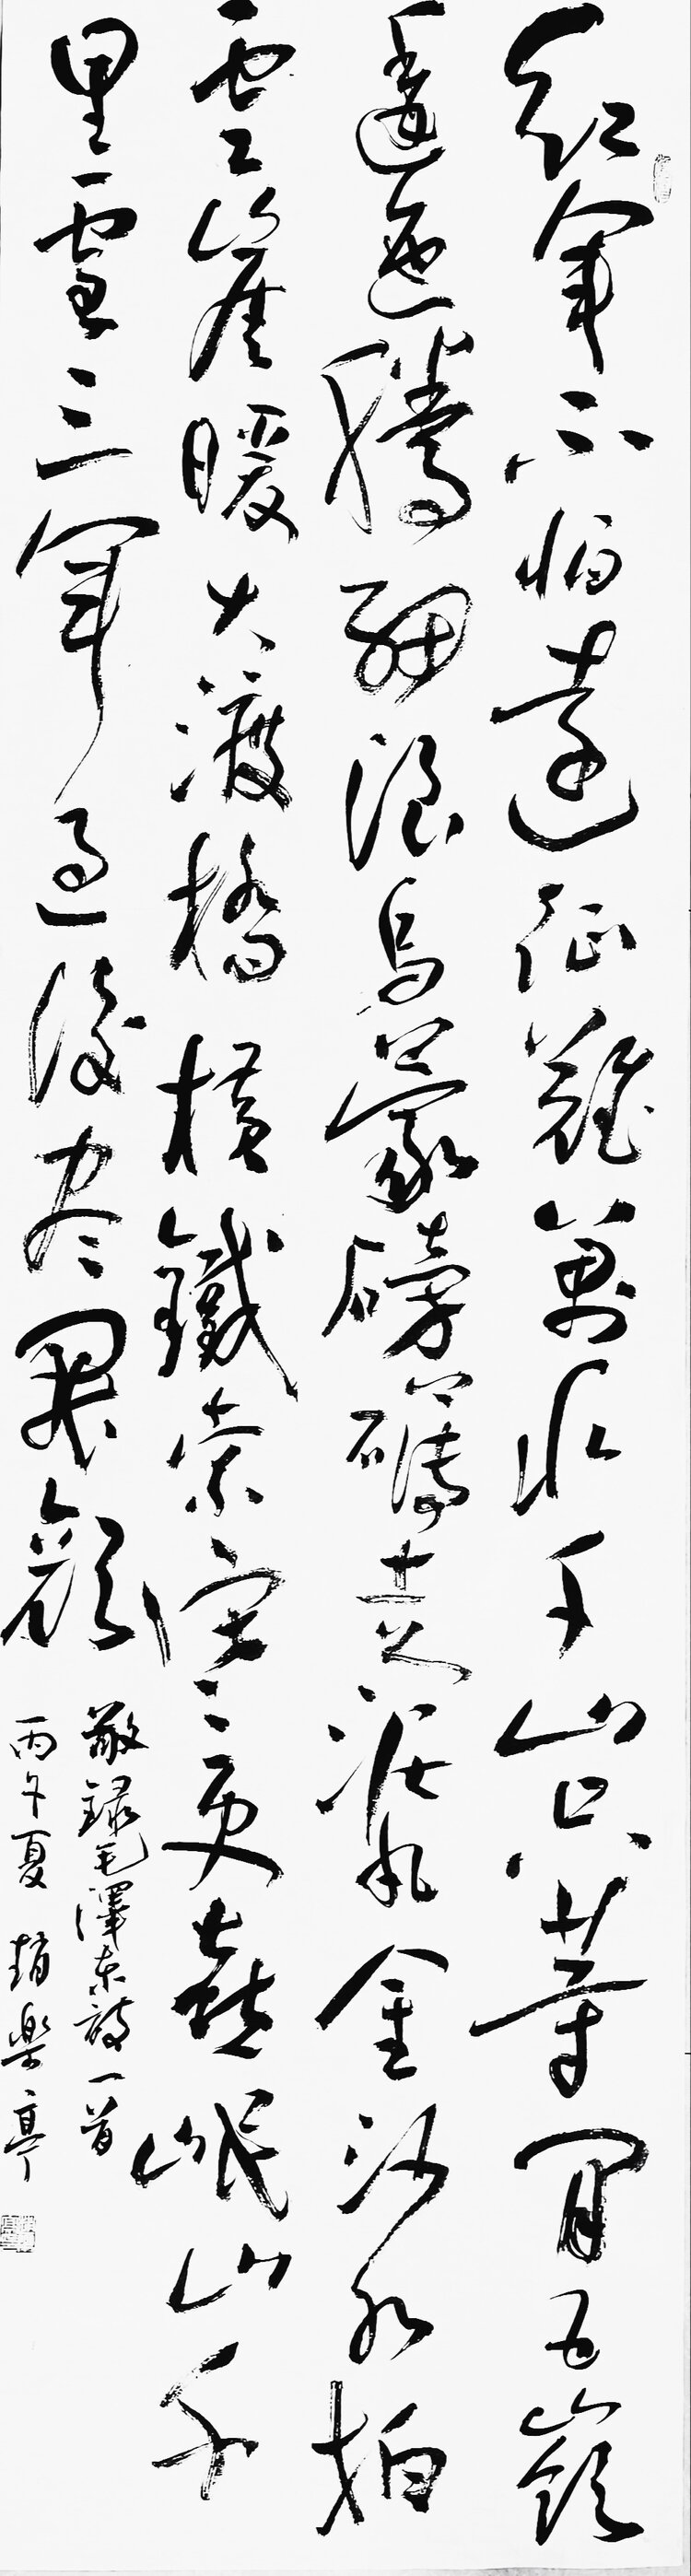 紅軍不怕遠征難萬水千山只等閒五嶺
逶迤騰細浪烏蒙磅礴走泥丸金沙水拍
雲崖暖大渡橋橫鐵索寒更喜岷山千
里雪三軍過後尽開顏
敬録毛澤東詩一首
丙午夏 趙樂亭